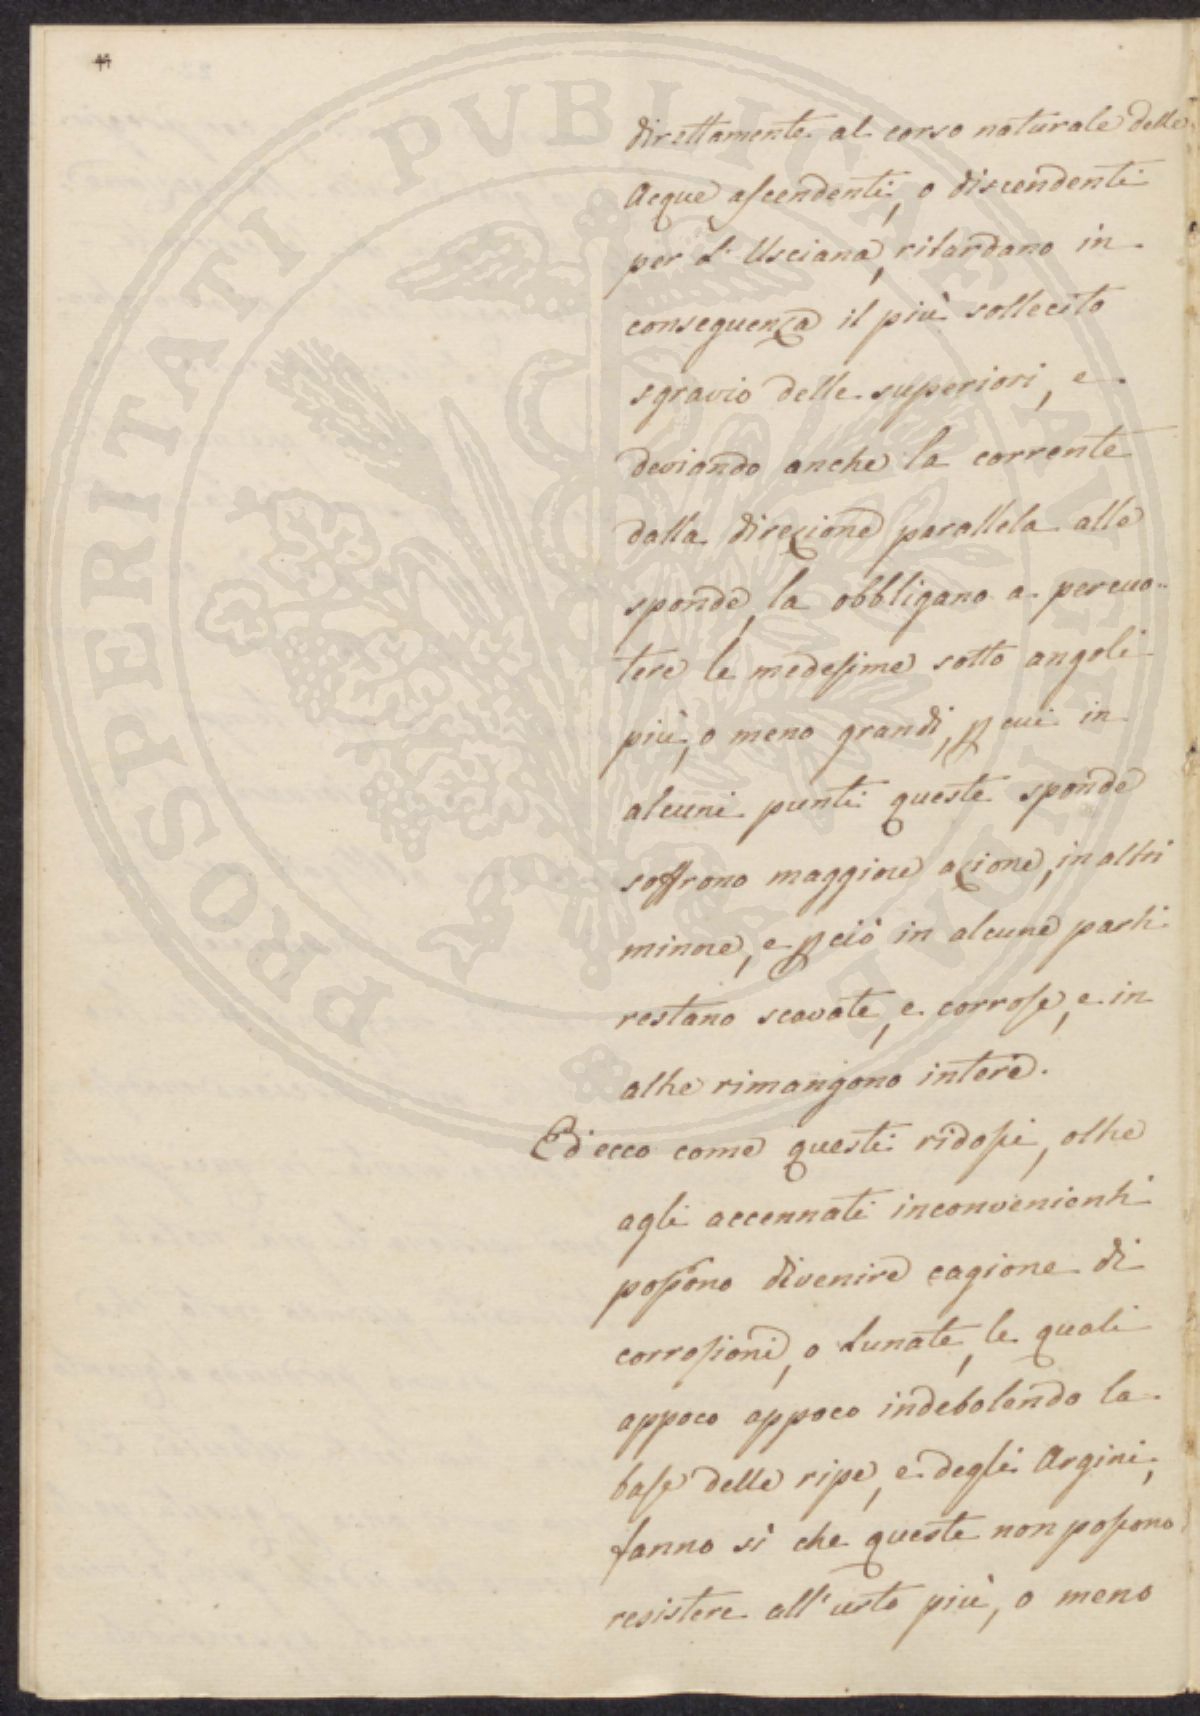 direttamente al corso naturale delle
Acque ascendenti, o discendenti
per l'Usciana, ritardano in
conseguenza il più sollecito
sgravio delle superiori, e
deviando anche la corrente
dalla direzione parallela alle
sponde, la obbligano a percuo-
tere le medesime sotto angoli
più, o meno grandi, p cui in
alcuni punti queste sponde
soffrono maggiore azione, in altri
minore, e pciò in alcune parti
restano scavate, e corrose, e in
altre rimangono intere.
Ed ecco come questi ridossi, oltre
agli accennati inconvenienti
possono divenire cagione di
corrosioni, o Lunate, le quali
appoco appoco indebolendo la
base delle ripe, e degli Argini,
fanno sì che queste non possono
resistere all'urto più, o meno
PROSPERITATI PVBLICAE AVGENDAE